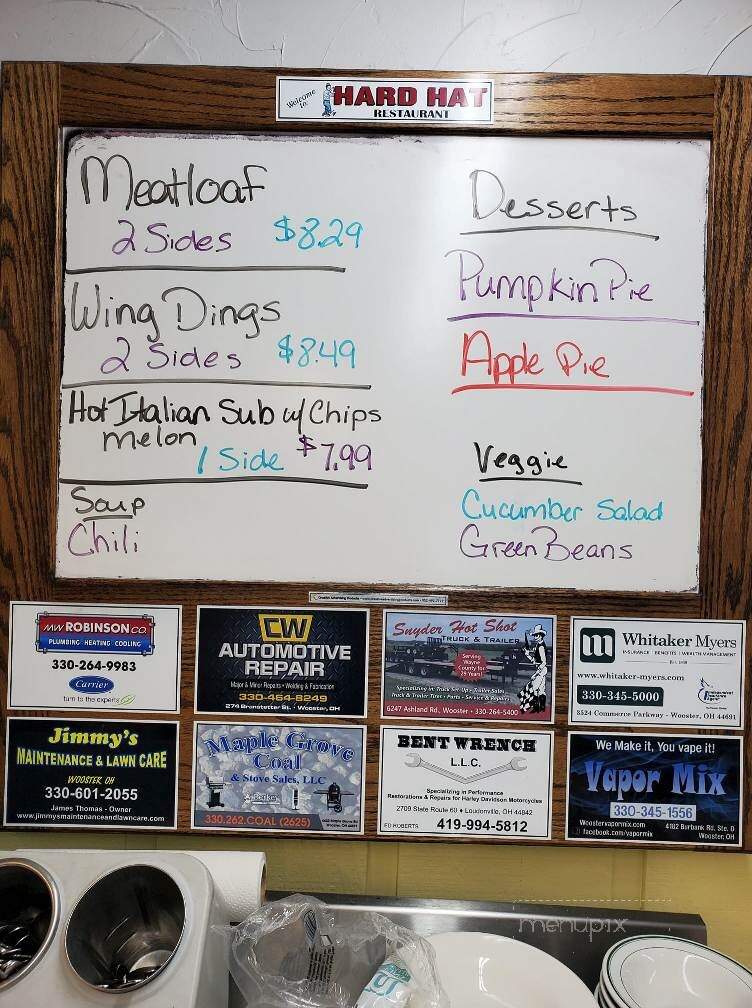 Welcome to:
HARD HAT
RESTAURANT
Meatloaf
2 Sides $8.29
Wing Dings
2 Sides $8.49
Hot Italian Sub w/ Chips
melon
1 Side $7.99
Soup
Chili
Desserts
Pumpkin Pie
Apple Pie
Veggie
Cucumber Salad
Green Beans
MW ROBINSON CO.
PLUMBING HEATING COOLING
330-264-9983
Carrier
turn to the experts
CW
AUTOMOTIVE
REPAIR
Major & Minor Repairs • Welding & Fabrication
330-464-8249
274 Branstetter St. • Wooster, OH
Snyder Hot Shot
TRUCK & TRAILER
Serving
Wayne
County for
29 Years!
Specializing in: Truck Set-Up • Trailer Sales
Truck & Trailer Tires • Parts • Service & Repairs
6247 Ashland Rd., Wooster • 330-264-5400
m Whitaker Myers
INSURANCE | BENEFITS | WEALTH MANAGEMENT
www.whitaker-myers.com
330-345-5000
3524 Commerce Parkway - Wooster, OH 44691
Jimmy's
MAINTENANCE & LAWN CARE
WOOSTER, OH
330-601-2055
James Thomas - Owner
www.jimmysmaintenanceandlawncare.com
Maple Grove
Coal
& Stove Sales, LLC
330.262.COAL (2625)
BENT WRENCH
L.L.C.
Specializing in Performance
Restorations & Repairs for Harley Davidson Motorcycles
2709 State Route 60 • Loudonville, OH 44842
ED ROBERTS 419-994-5812
We Make it, You vape it!
Vapor Mix
330-345-1556
Woostervapormix.com
facebook.com/vapormix
4162 Burbank Rd. Ste. D
Wooster, OH
menupix